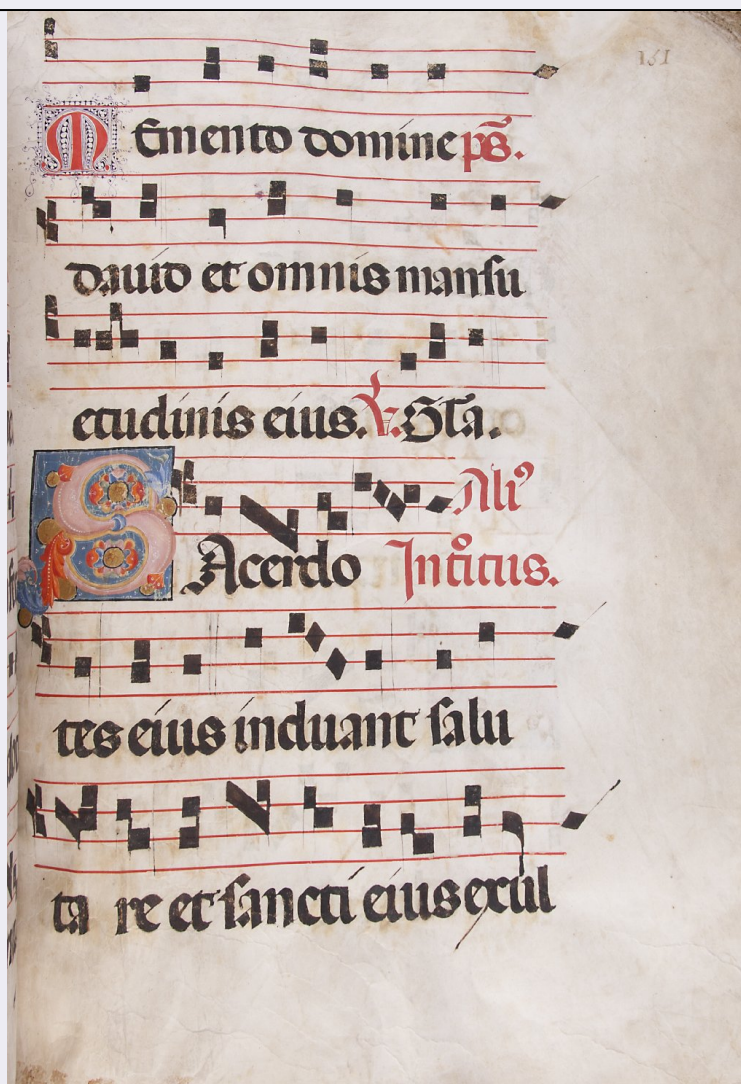 151
Memento domine ps̄.
dauid et omnis mansu
etudinis eius. ℣. Gła.
Aliꝰ
Sacerdo Intͦitus.
tes eius induant salu
ta re et sancti eius exul